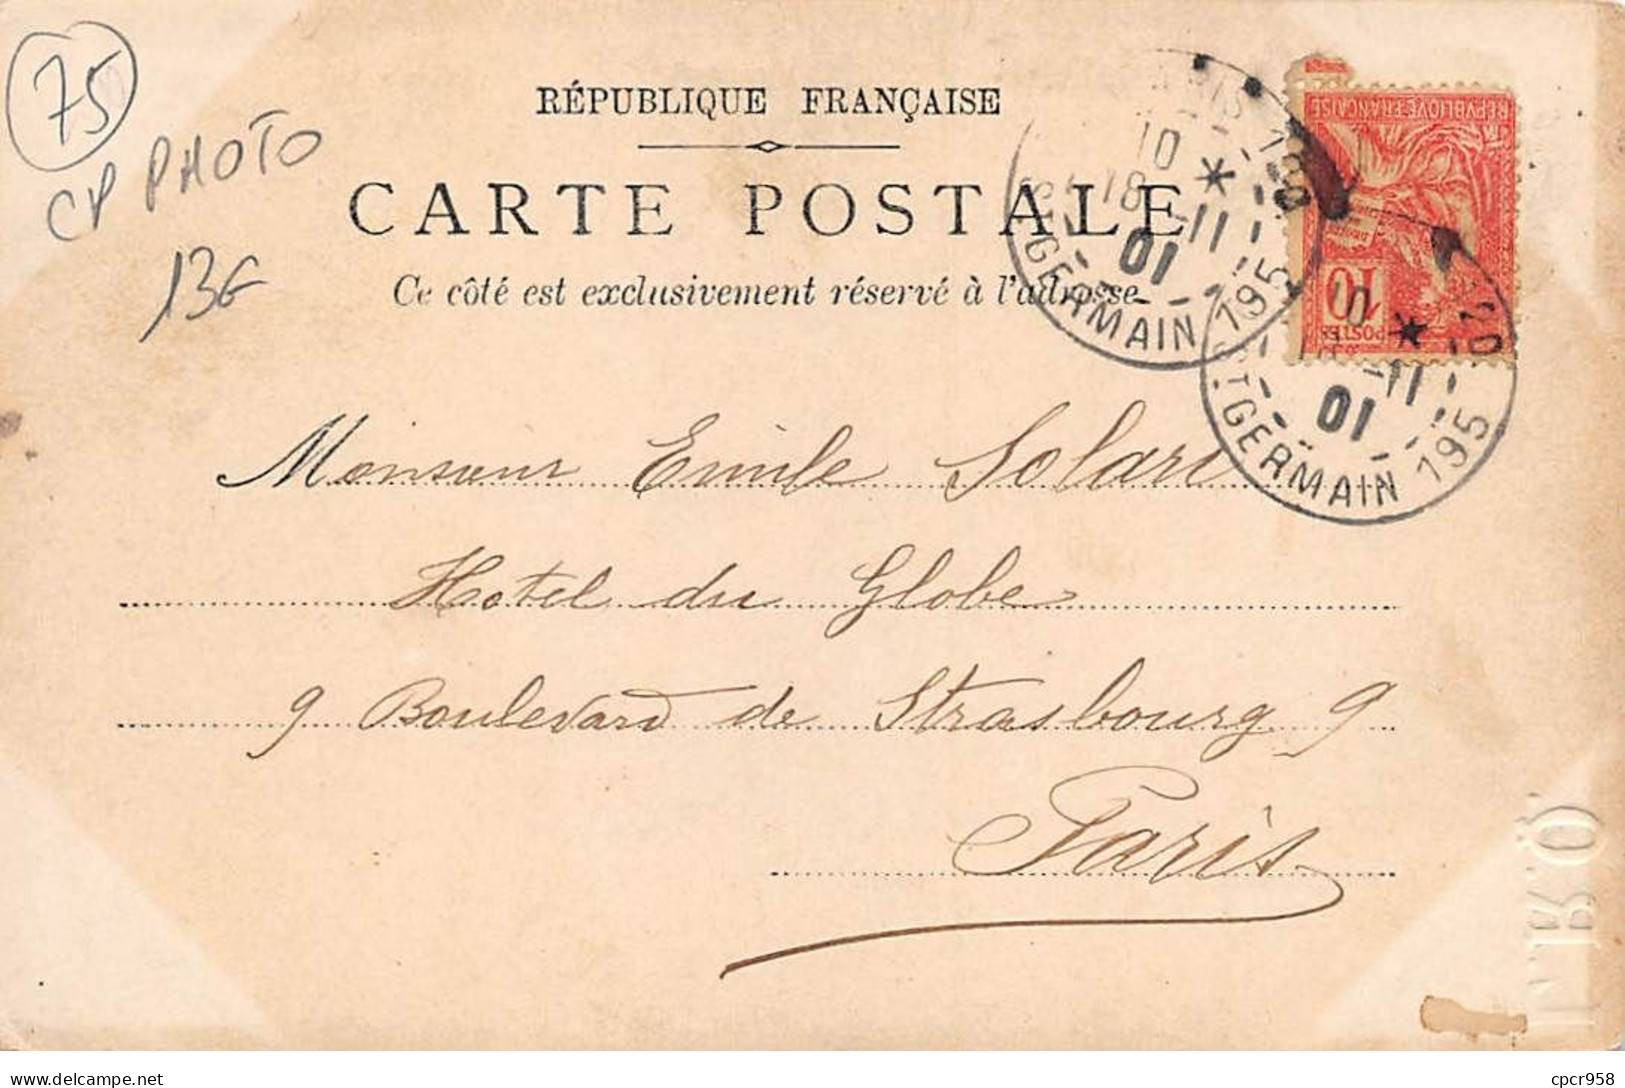 75
CP PHOTO
13G
RÉPUBLIQUE FRANÇAISE
CARTE POSTALE
Ce côté est exclusivement réservé à l'adresse
10
18 -11
01
ST GERMAIN 195
RÉPUBLIQUE FRANÇAISE
10
POSTES
10
-11
01
ST GERMAIN 195
Monsieur Emile Solari
Hotel du Globe
9 Boulevard de Strasbourg 9
Paris
delcampe.net
cpcr958